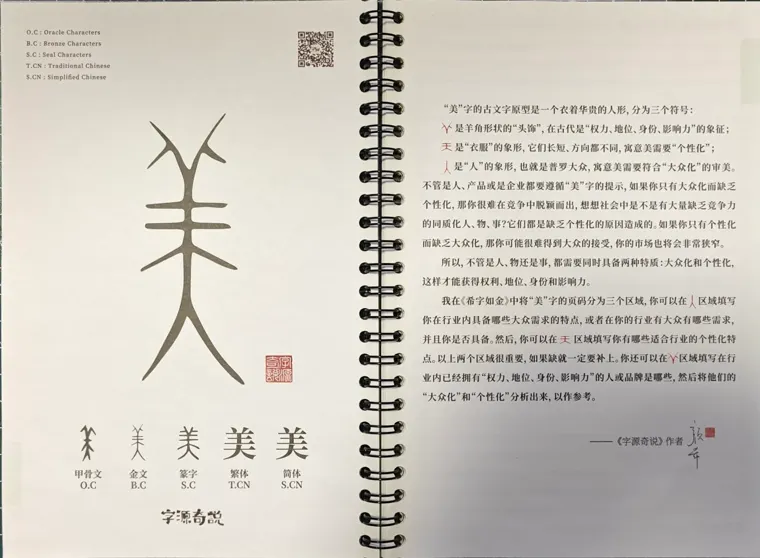 O.C : Oracle Characters
B.C : Bronze Characters
S.C : Seal Characters
T.CN : Traditional Chinese
S.CN : Simplified Chinese
美
甲骨文 金文 篆字 繁体 简体
O.C B.C S.C T.CN S.CN
美 美
字源奇说
“美”字的古文字原型是一个衣着华贵的人形，分为三个符号：
是羊角形状的“头饰”，在古代是“权力、地位、身份、影响力”的象征；
是“衣服”的象形，它们长短、方向都不同，寓意美需要“个性化”；
是“人”的象形，也就是普罗大众，寓意美需要符合“大众化”的审美。
不管是人、产品或是企业都要遵循“美”字的提示，如果你只有大众化而缺乏
个性化，那你很难在竞争中脱颖而出，想想社会中是不是有大量缺乏竞争力
的同质化人、物、事？它们都是缺乏个性化的原因造成的。如果你只有个性化
而缺乏大众化，那你可能很难得到大众的接受，你的市场也将会非常狭窄。
所以，不管是人、物还是事，都需要同时具备两种特质：大众化和个性化，
这样才能获得权利、地位、身份和影响力。
我在《希字如金》中将“美”字的页码分为三个区域，你可以在 区域填写
你在行业内具备哪些大众需求的特点，或者在你的行业有大众有哪些需求，
并且你是否具备。然后，你可以在 区域填写你有哪些适合行业的个性化特
点。以上两个区域很重要，如果缺就一定要补上。你还可以在 区域填写在行
业内已经拥有“权力、地位、身份、影响力”的人或品牌是哪些，然后将他们的
“大众化”和“个性化”分析出来，以作参考。
——《字源奇说》作者